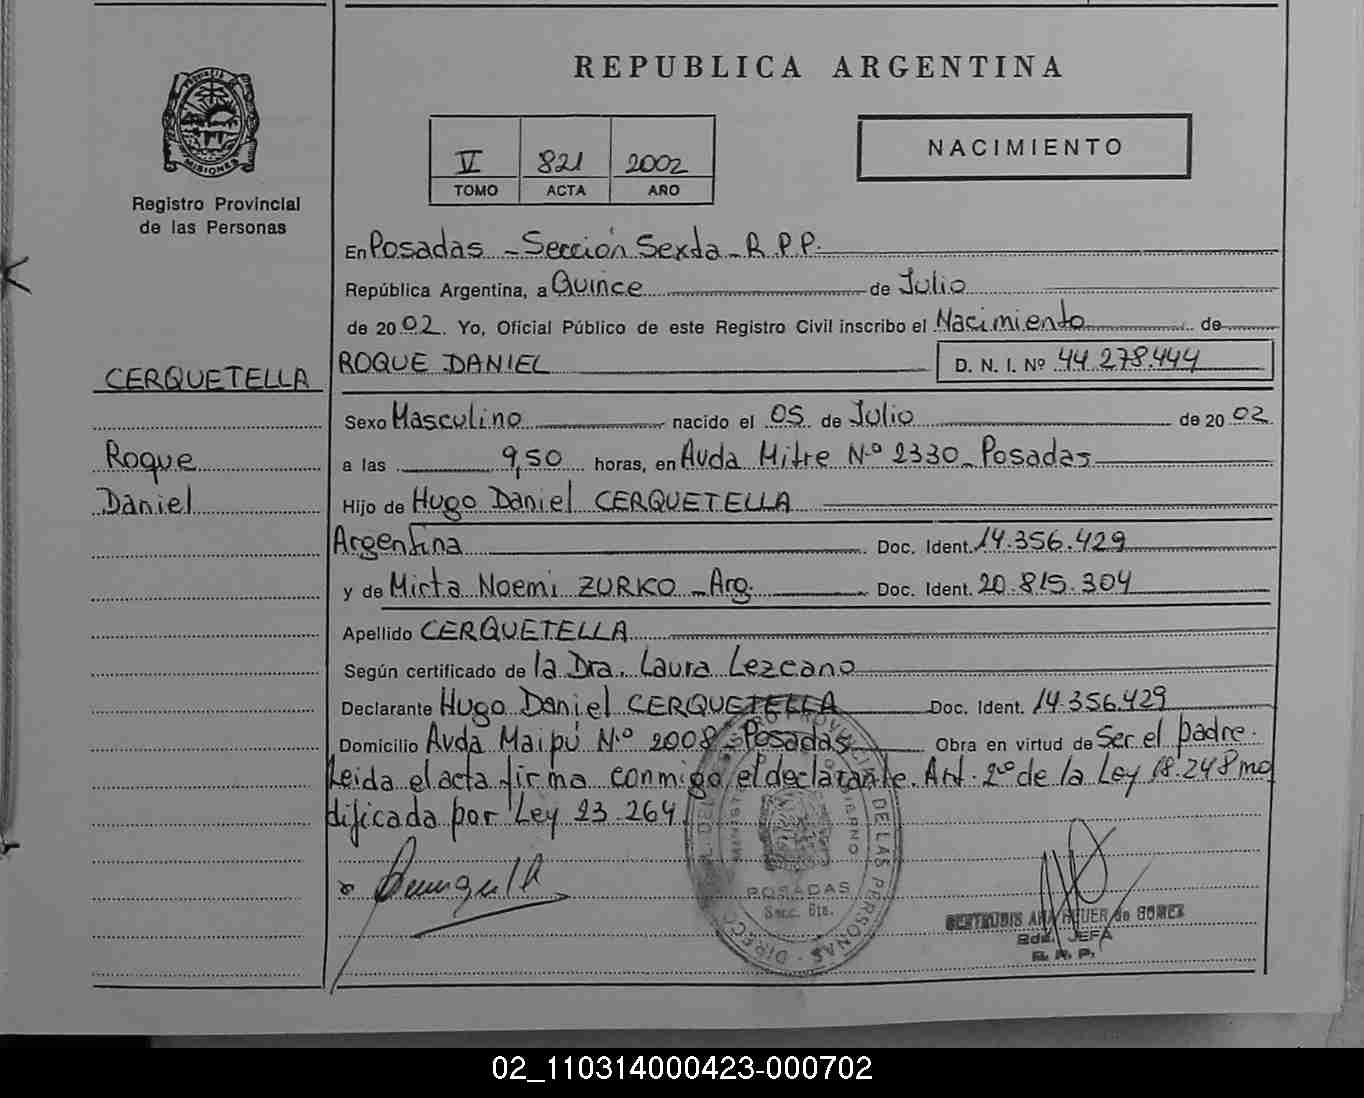 REPUBLICA ARGENTINA
PROVINCIA DE MISIONES
Registro Provincial
de las Personas
V 821 2002
TOMO ACTA AÑO
NACIMIENTO
En Posadas - Sección Sexta - R.P.P.
República Argentina, a Quince de Julio
de 2002. Yo, Oficial Público de este Registro Civil inscribo el Nacimiento de
ROQUE DANIEL D. N. I. Nº 44.278.444
CERQUETELLA
Roque
Daniel
Sexo Masculino nacido el 05 de Julio de 2002
a las 9,50 horas, en Avda Mitre Nº 2330 - Posadas
Hijo de Hugo Daniel CERQUETELLA
Argentina Doc. Ident. 14.356.429
y de Mirta Noemi ZURKO - Arg. Doc. Ident. 20.815.304
Apellido CERQUETELLA
Según certificado de la Dra. Laura Lezcano
Declarante Hugo Daniel CERQUETELLA Doc. Ident. 14.356.429
Domicilio Avda Maipú Nº 2008 - Posadas Obra en virtud de Ser el padre.
Leida el acta firma conmigo el declarante. Art. 2º de la Ley 18.248 mo
dificada por Ley 23.264.
POSADAS
Secc. 6ta.
GERTRUDIS ANA HEUER de GOMEZ
JEFA
R. P. P.
02_110314000423-000702